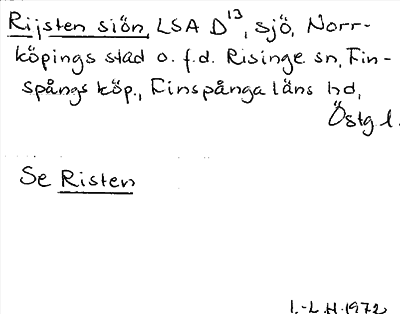 Rijsten siön, LSA D¹³, sjö, Norr-
köpings stad o. f.d. Risinge sn, Fin-
spångs köp., Finspånga läns hd,
Östg l.
Se Risten
I.-L.H. 1972